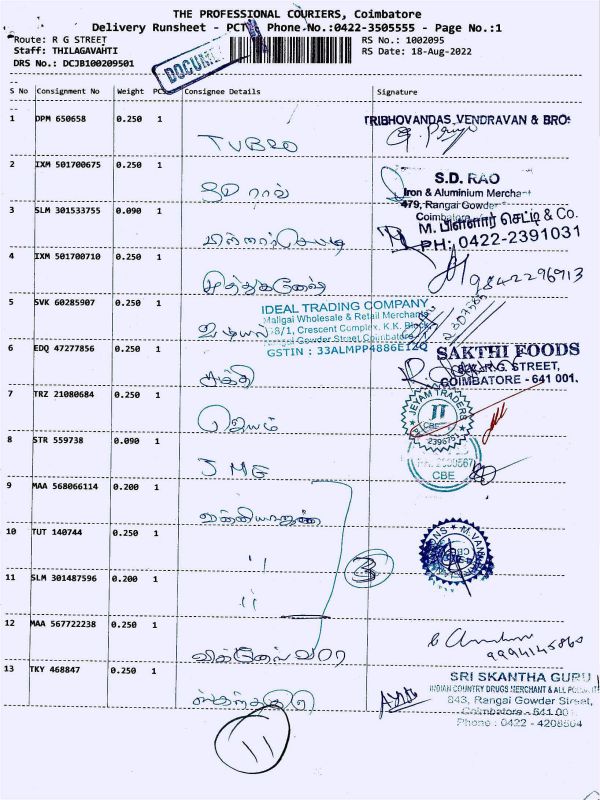 THE PROFESSIONAL COURIERS, Coimbatore
Delivery Runsheet - PCT Phone No.:0422-3505555 - Page No.:1
Route: R G STREET RS No.: 1002095
Staff: THILAGAVAHTI RS Date: 18-Aug-2022
DRS No.: DCJB100209501
DOCUME
S No Consignment No Weight PCS Consignee Details Signature
1 DPM 650658 0.250 1 TRIBHOVANDAS VENDRAVAN & BROS
TUBRO
2 IXM 501700675 0.250 1
S.D. RAO
SD ராவ்
Iron & Aluminium Merchant
479, Rangai Gowder
Coimbatore
3 SLM 301533755 0.090 1
M. பிள்ளார் செட்டி & Co.
PH: 0422-2391031
4 IXM 501700710 0.250 1
9842296913
முத்துகணேஷ்
5 SVK 60285907 0.250 1
IDEAL TRADING COMPANY
Maligai Wholesale & Retail Merchants
68/1, Crescent Complex, K.K. Block,
Rangai Gowder Street, Coimbatore
GSTIN : 33ALMPP4886E1ZQ
6 EDQ 47277856 0.250 1
SAKTHI FOODS
R.G. STREET,
COIMBATORE - 641 001.
சக்தி
7 TRZ 21080684 0.250 1
JEYAM TRADERS
JT
CBE
2396751
ஜெயம்
8 STR 559738 0.090 1
CBE
JMG
9 MAA 568066114 0.200 1
10 TUT 140744 0.250 1
"
3
M.VANNI
CBE
11 SLM 301487596 0.200 1
"
12 MAA 567722238 0.250 1
9994145860
13 TKY 468847 0.250 1
SRI SKANTHA GURU
INDIAN COUNTRY DRUGS MERCHANT & ALL
843, Rangai Gowder Street,
Coimbatore - 641 001
Phone : 0422 - 4208504
ஸ்கந்தகுரு
11